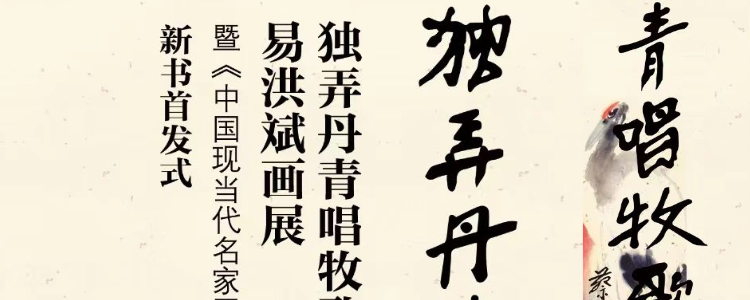 青唱牧
蔡
独弄丹
独弄丹青唱牧
易洪斌画展
暨《中国现当代名家
新书首发式